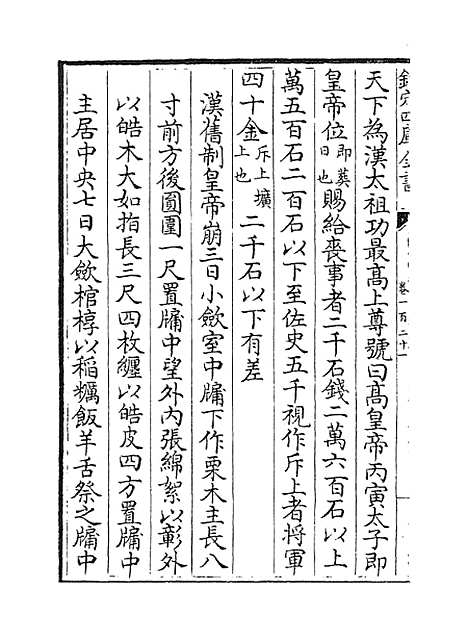 欽定四庫全書
卷一百二十一
天下為漢太祖功最髙上尊號曰髙皇帝丙寅太子即
皇帝位即葬日也賜給喪事者二千石錢二萬六百石以上
萬五百石二百石以下至佐史五千視作斥上者將軍
四十金斥上壙上也二千石以下有差
漢舊制皇帝崩三日小歛室中牖下作栗木主長八
寸前方後圓圍一尺置牖中望外内張綿絮以彰外
以皓木大如指長三尺四枚纏以皓皮四方置牖中
主居中央七日大歛棺椁以稻糲飯羊舌祭之牖中